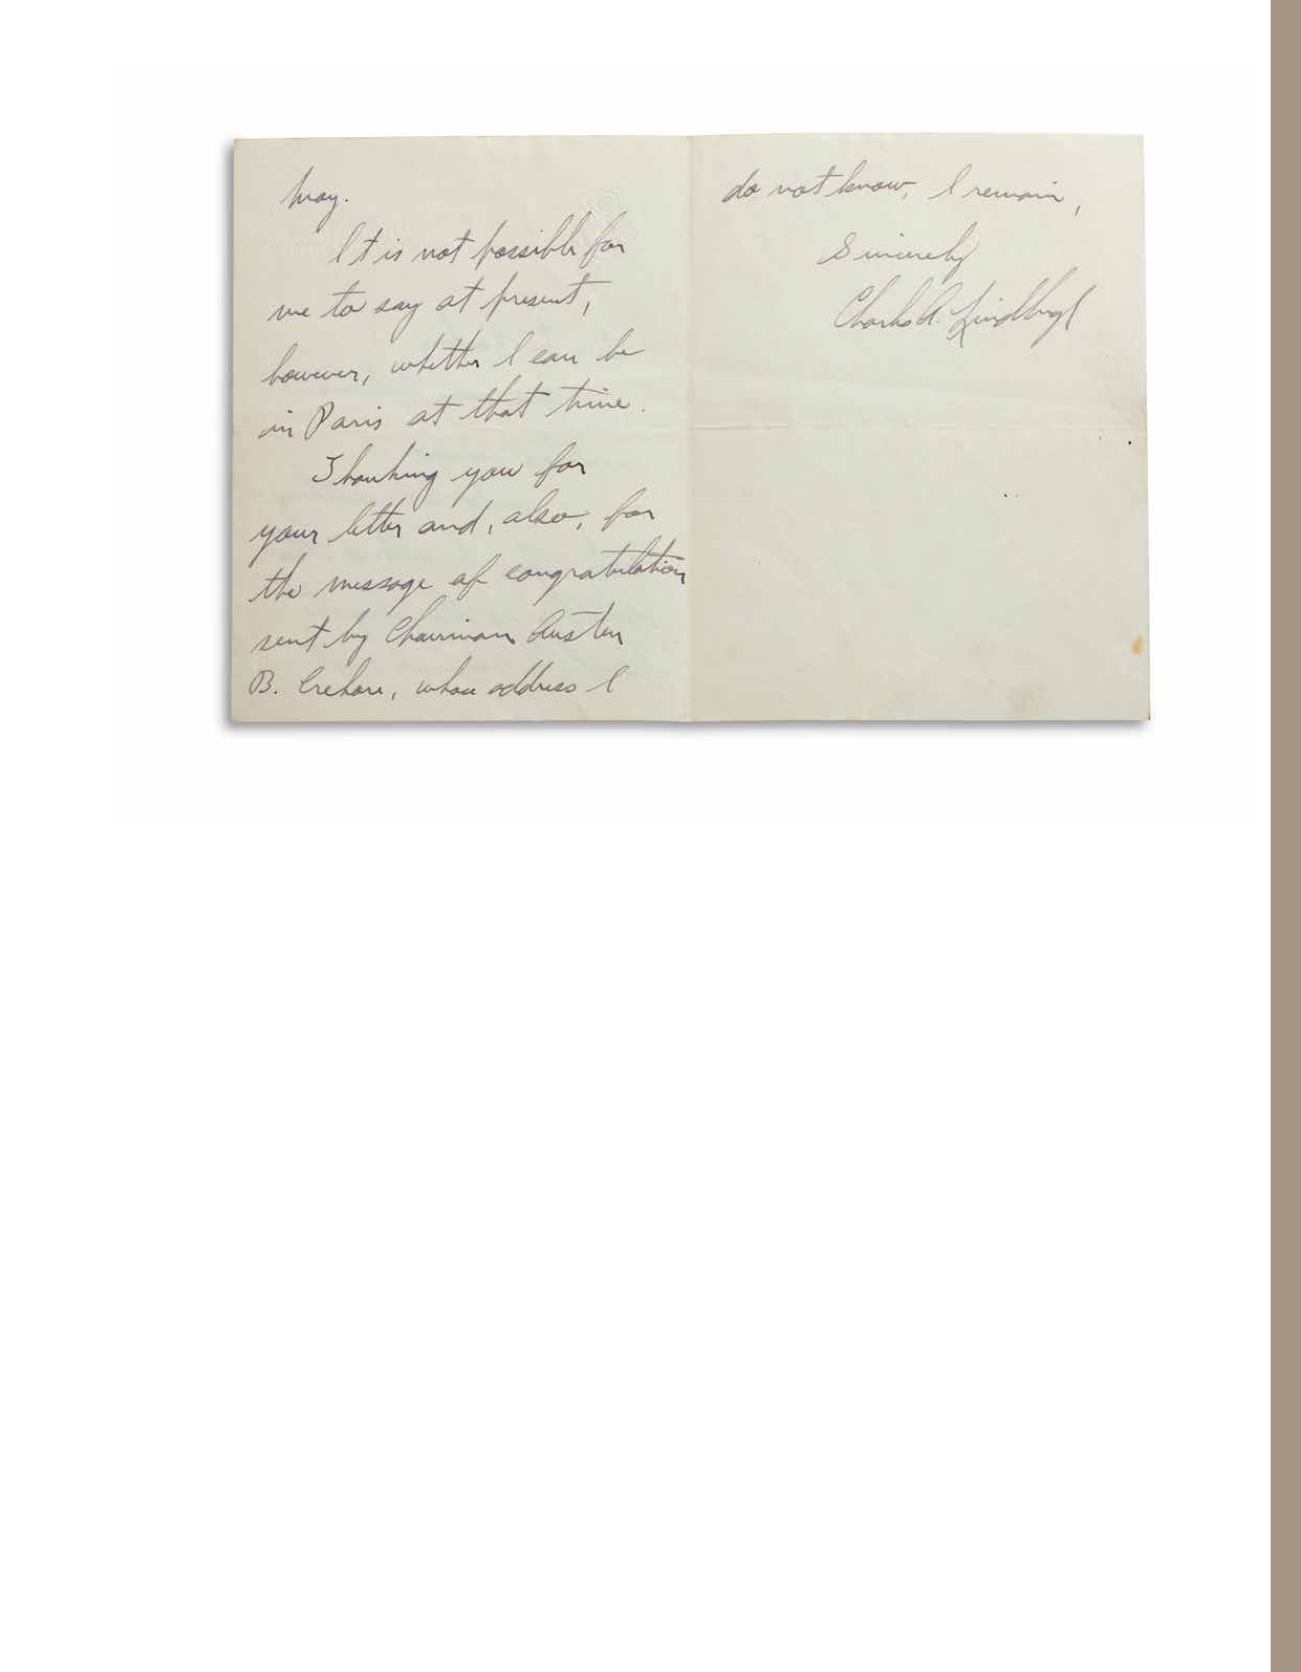 May.
It is not possible for
me to say at present,
however, whether I can be
in Paris at that time.
Thanking you for
your letter and, also, for
the message of congratulation
sent by Chairman Austen
B. Crehore, whose address I
do not know, I remain,
Sincerely
Charles A. Lindbergh